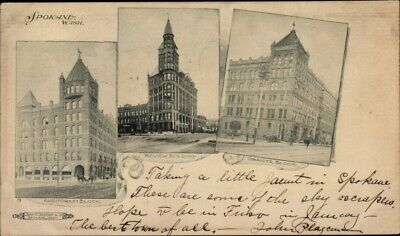 SPOKANE,
WASH.
AUDITORIUM BLOCK.
REVIEW BUILDING.
GRANITE BLOCK.
Taking a little jaunt in Spokane
These are some of the sky scrapers.
Hope to be in Frisco in January
The best town of all. John